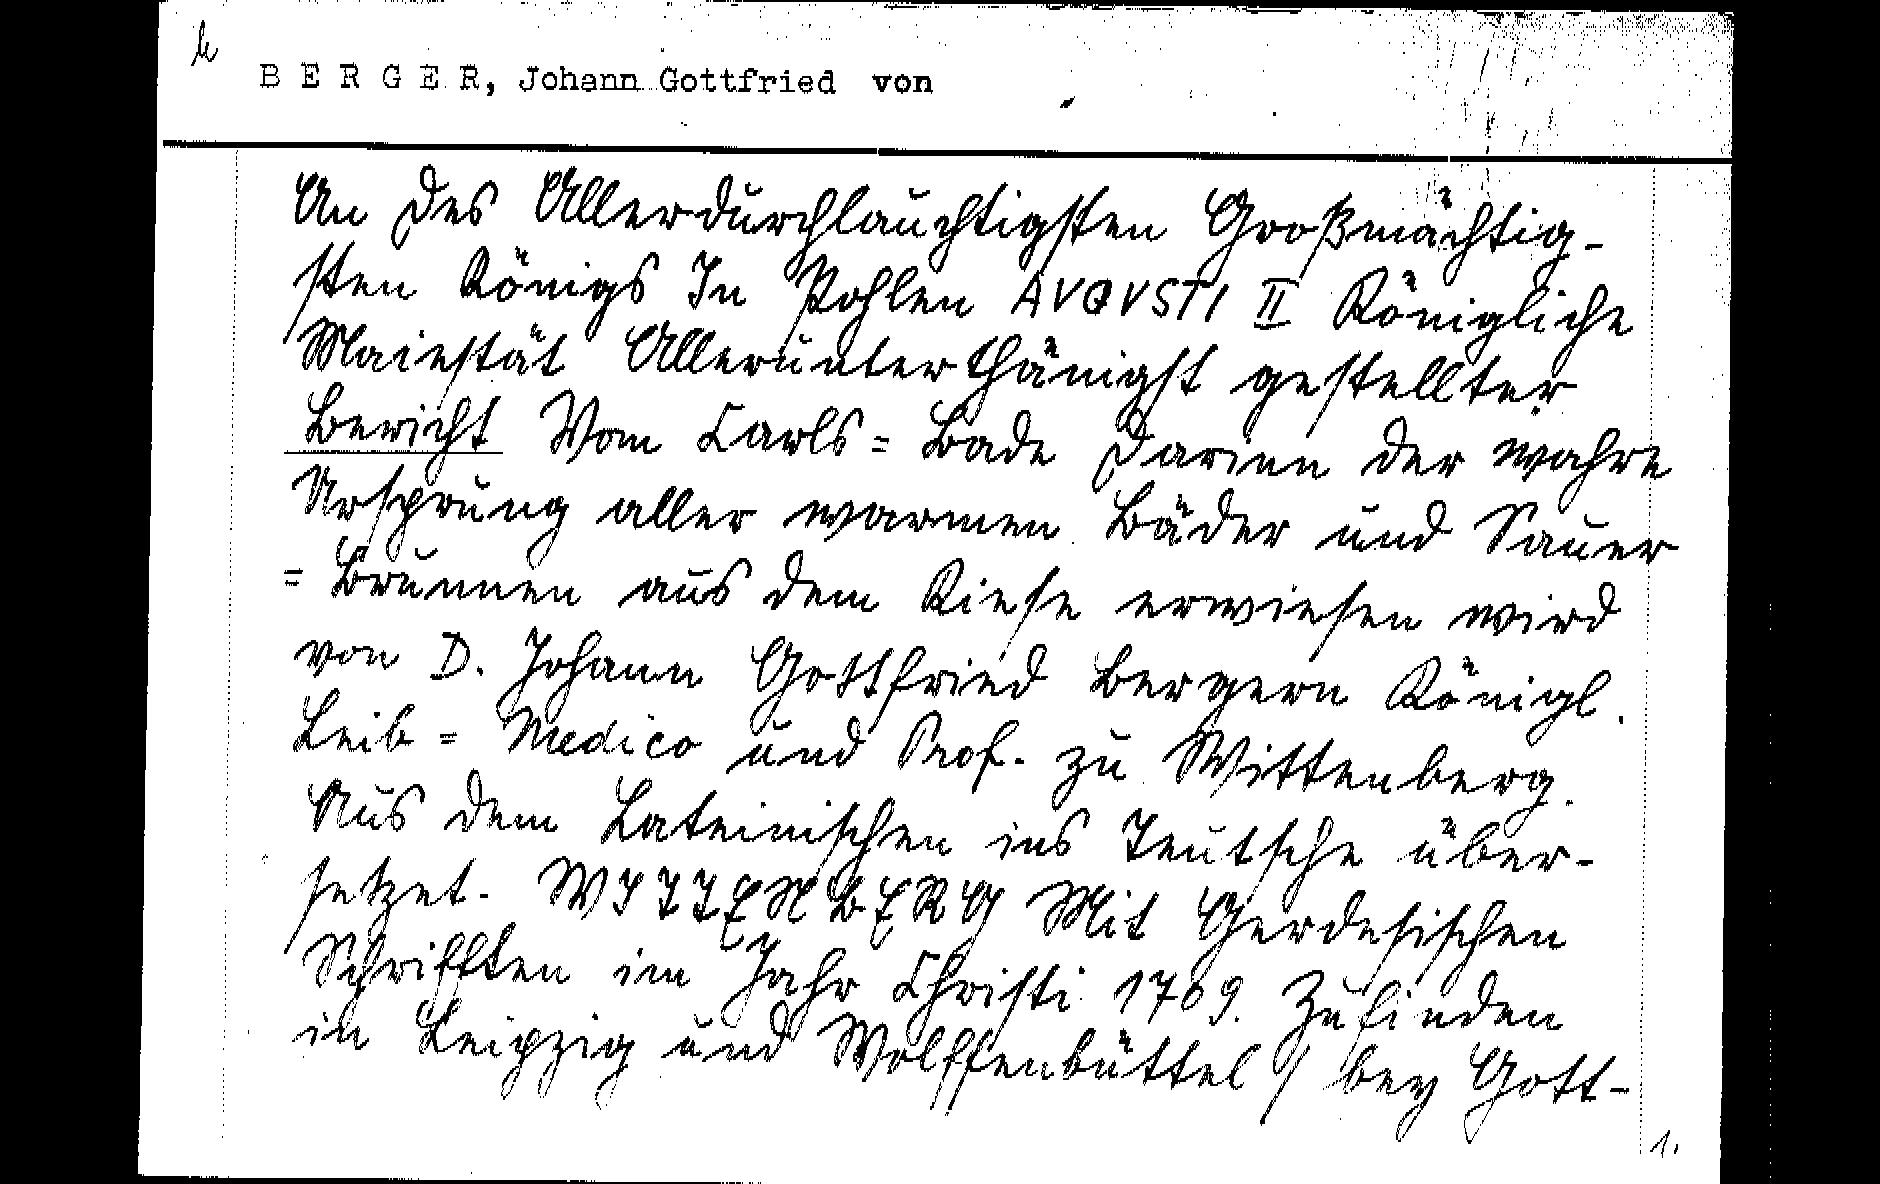 h
BERGER, Johann Gottfried von
An des Allerdurchlauchtigsten Großmächtig-
sten Königs In Pohlen AVGVSTI II Königliche
Maiestät Allerunterthänigst gestellter
Bericht Vom Carls = Bade Darinn der wahre
Ursprung aller warmen Bäder und Sauer
= Brunnen aus dem Kiese erwiesen wird
von D. Johann Gottfried Bergern Königl.
Leib = Medico und Prof. zu Wittenberg.
Aus dem Lateinischen ins Teutsche über-
setzet. WITTENBERG Mit Gerdesischen
Schrifften im Jahr Christi 1709. Zufinden
in Leipzig und Wolffenbüttel / bey Gott-
1.